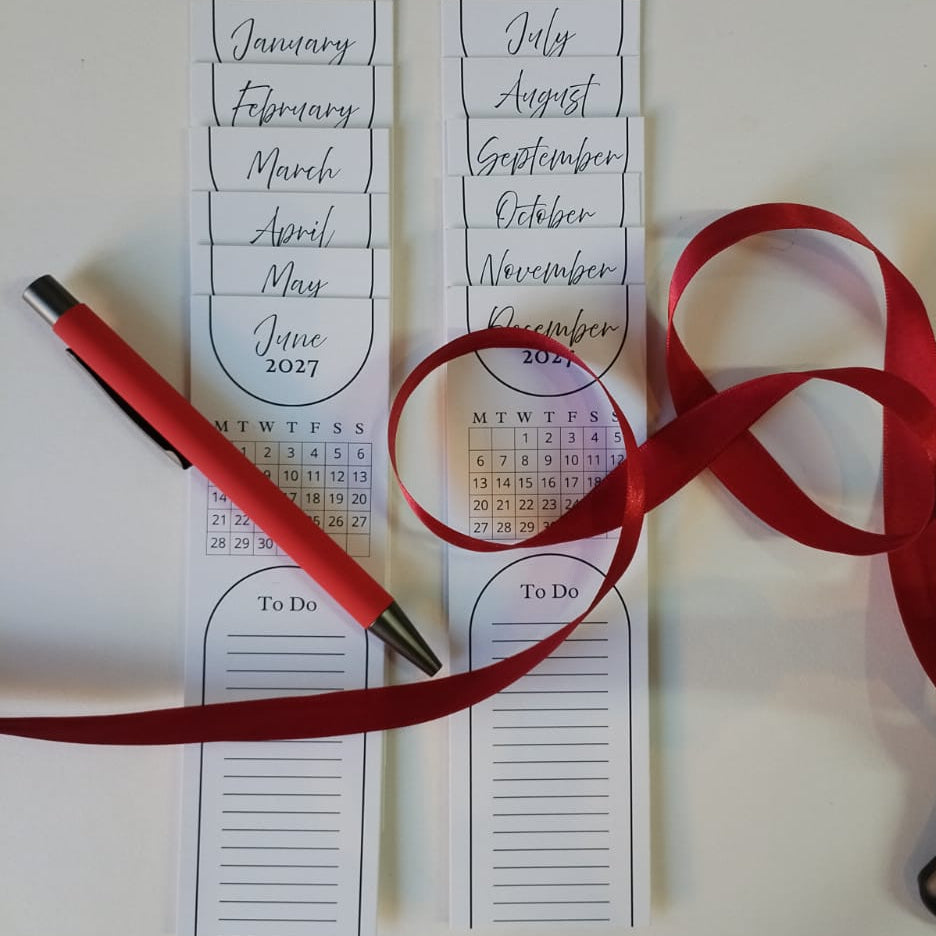 January
February
March
April
May
June
2027
M T W T F S S
1 2 3 4 5 6
9 10 11 12 13
14 17 18 19 20
21 22 25 26 27
28 29 30
To Do
July
August
September
October
November
December
2027
M T W T F S S
1 2 3 4 5
6 7 8 9 10 11 12
13 14 15 16 17 18
20 21 22 23
27 28 29
To Do